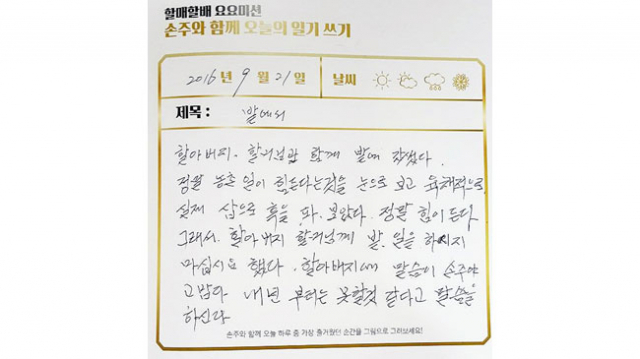 할매할배 요요미션
손주와 함께 오늘의 일기 쓰기
2016년 9월 21일 날씨
제목 : 밭에서
할아버지. 할머님과 함께 밭에 갔었다.
정말 농촌 일이 힘든다는것을 눈으로 보고 육체적으로
실제 삽으로 흙을 파 보았다. 정말 힘이 든다
그래서. 할아버지 할머님께 밭. 일을 하시지
마십시요 했다. 할아버지께 말씀이 손주야
고맙다 내년 부터는 못할것 같다고 말씀을
하신다
손주와 함께 오늘 하루 중 가장 즐거웠던 순간을 그림으로 그려보세요!